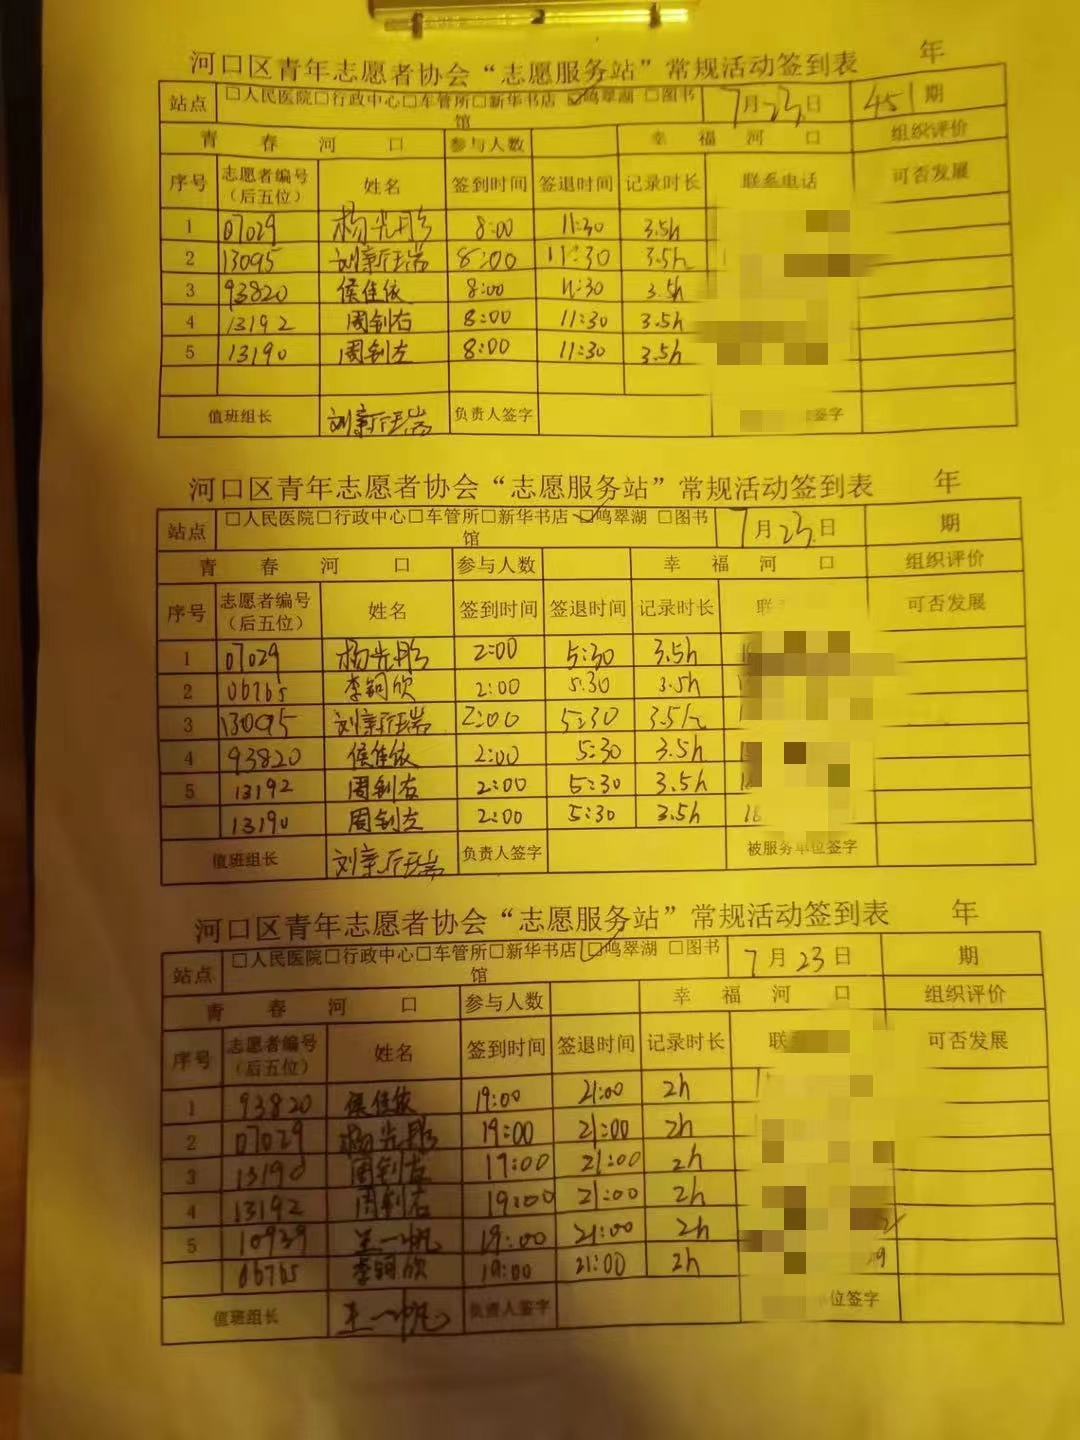 河口区青年志愿者协会“志愿服务站”常规活动签到表 年
站点 □人民医院□行政中心□车管所□新华书店 ☑鸣翠湖 □图书馆 7月23日 451期
青春河口 参与人数 幸福河口 组织评价
序号 志愿者编号（后五位） 姓名 签到时间 签退时间 记录时长 联系电话 可否发展
1 07029 杨光彤 8:00 11:30 3.5h
2 13095 8:00 11:30 3.5h
3 93820 侯佳依 8:00 11:30 3.5h
4 13192 周钊右 8:00 11:30 3.5h
5 13190 周钊左 8:00 11:30 3.5h
值班组长 负责人签字 签字
河口区青年志愿者协会“志愿服务站”常规活动签到表 年
站点 □人民医院□行政中心□车管所□新华书店 ☑鸣翠湖 □图书馆 7月23日 期
青春河口 参与人数 幸福河口 组织评价
序号 志愿者编号（后五位） 姓名 签到时间 签退时间 记录时长 联 可否发展
1 07029 杨光彤 2:00 5:30 3.5h
2 06765 李钶欣 2:00 5:30 3.5h
3 13095 2:00 5:30 3.5h
4 93820 侯佳依 2:00 5:30 3.5h
5 13192 周钊右 2:00 5:30 3.5h
13190 周钊左 2:00 5:30 3.5h
值班组长 负责人签字 被服务单位签字
河口区青年志愿者协会“志愿服务站”常规活动签到表 年
站点 □人民医院□行政中心□车管所□新华书店 ☑鸣翠湖 □图书馆 7月23日 期
青春河口 参与人数 幸福河口 组织评价
序号 志愿者编号（后五位） 姓名 签到时间 签退时间 记录时长 联 可否发展
1 93820 侯佳依 19:00 21:00 2h
2 07029 杨光彤 19:00 21:00 2h
3 13190 周钊左 19:00 21:00 2h
4 13192 周钊右 19:00 21:00 2h
5 10939 王一帆 19:00 21:00 2h
06765 李钶欣 19:00 21:00 2h
值班组长 王一帆 负责人签字 位签字